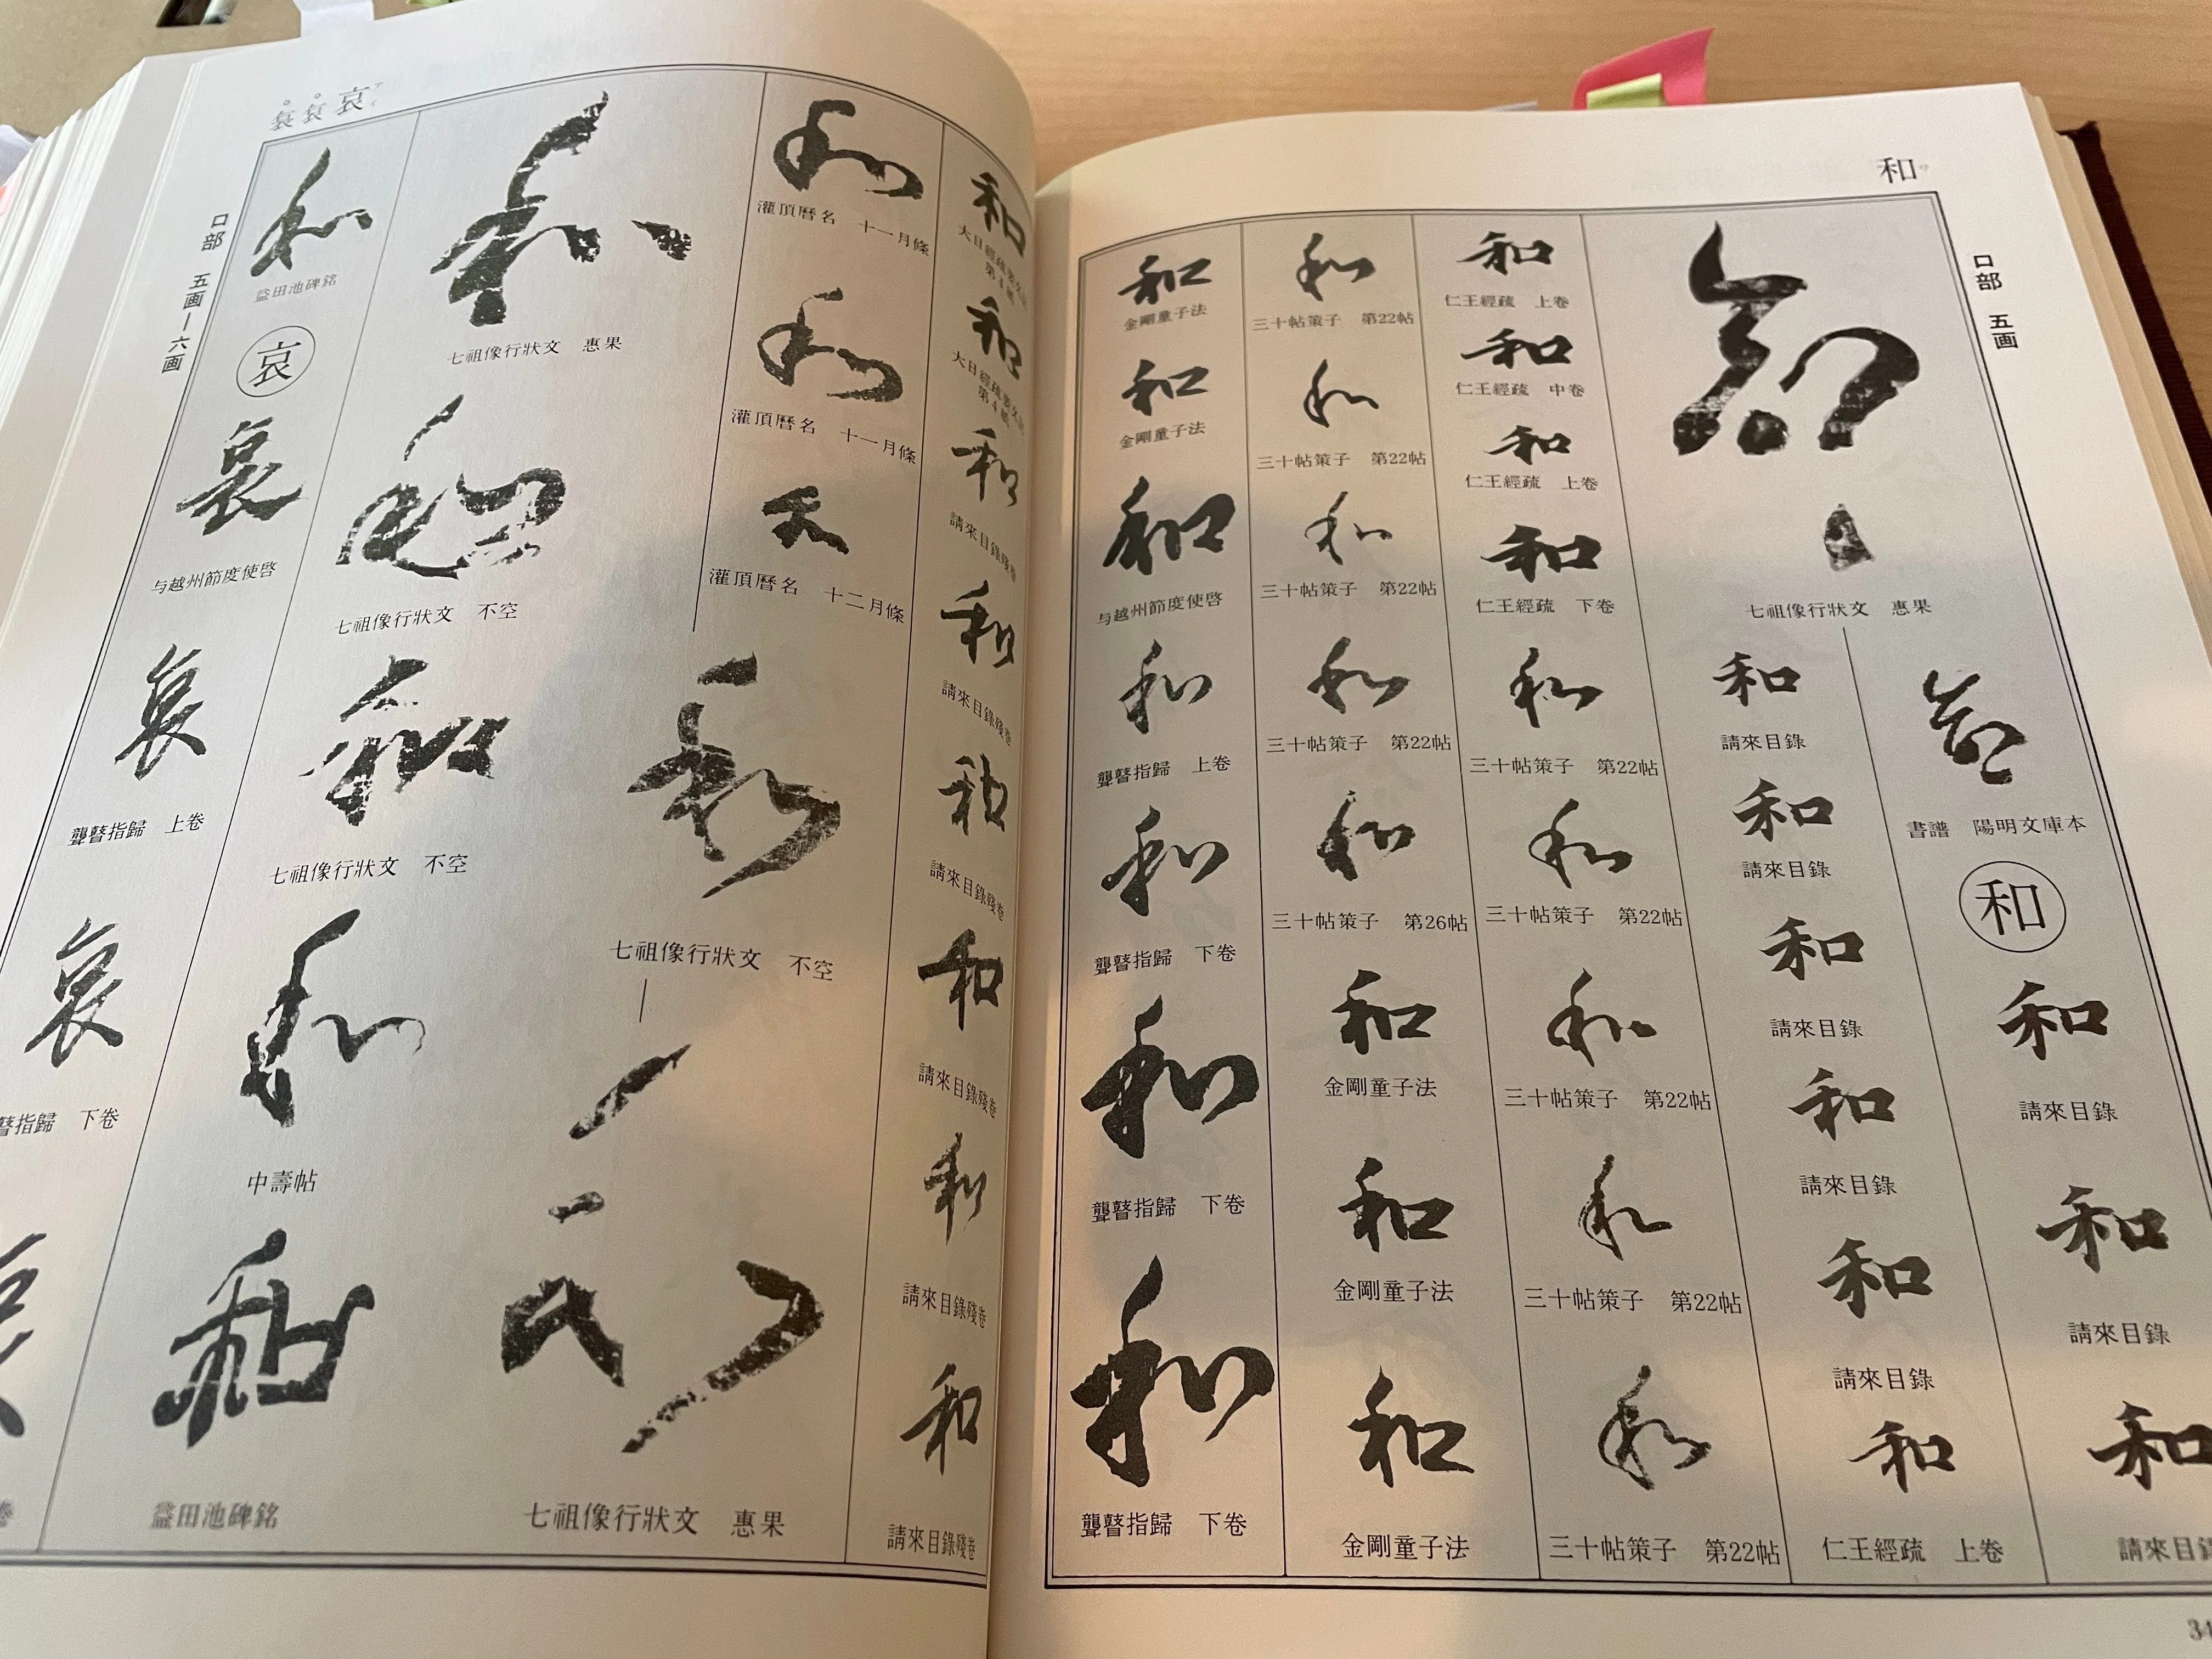 和
口部 五画
七祖像行狀文 惠果
書譜 陽明文庫本
和
和
請來目錄
和
請來目錄
和
請來目
和
請來目錄
和
請來目錄
和
請來目錄
和
請來目錄
和
請來目錄
和
仁王經疏 上卷
和
仁王經疏 上卷
和
仁王經疏 中卷
和
仁王經疏 上卷
和
仁王經疏 下卷
和
三十帖策子 第22帖
和
三十帖策子 第22帖
和
三十帖策子 第22帖
和
三十帖策子 第22帖
和
三十帖策子 第22帖
和
三十帖策子 第22帖
和
三十帖策子 第22帖
和
三十帖策子 第22帖
和
三十帖策子 第22帖
和
三十帖策子 第26帖
和
金剛童子法
和
金剛童子法
和
金剛童子法
和
金剛童子法
和
金剛童子法
和
与越州節度使啓
和
聾瞽指歸 上卷
和
聾瞽指歸 下卷
和
聾瞽指歸 下卷
和
聾瞽指歸 下卷
34
哀
口部 五画—六画
和
大日經疏要文
第4紙
和
大日經疏要文
第4紙
和
請來目錄殘卷
和
請來目錄殘卷
和
請來目錄殘卷
和
請來目錄殘卷
和
請來目錄殘卷
和
請來目錄殘卷
和
灌頂曆名 十一月條
和
灌頂曆名 十一月條
灌頂曆名 十二月條
和
七祖像行狀文 不空
和
七祖像行狀文 惠果
和
七祖像行狀文 惠果
和
七祖像行狀文 不空
和
七祖像行狀文 不空
和
中壽帖
和
益田池碑銘
和
益田池碑銘
哀
哀
与越州節度使啓
哀
聾瞽指歸 上卷
哀
瞽指歸 下卷